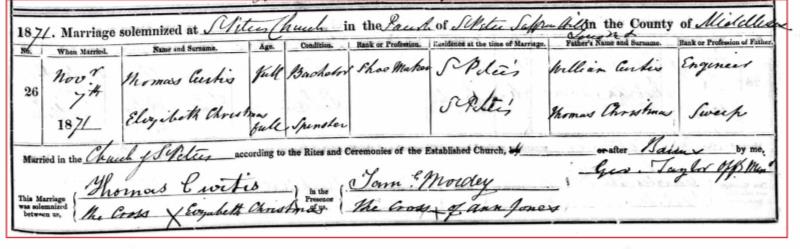 1871. Marriage solemnized at St Peters Church in the Parish of St Peter Saffron Hill in the County of Middlesex
No. When Married. Name and Surname. Age. Condition. Rank or Profession. Residence at the time of Marriage. Father's Name and Surname. Rank or Profession of Father.
26 Novr 7th 1871 Thomas Curtis full Bachelor Shoe Maker St Peter's William Curtis Engineer
Elizabeth Christmas full Spinster St Peter's Thomas Christmas Sweep
Married in the Church of St Peters according to the Rites and Ceremonies of the Established Church, or after Banns by me,
Geo. Taylor Offg Minr
This Marriage was solemnized between us, Thomas Curtis In the Presence of us, Saml Mordey
the Cross X Elizabeth Christmas the Cross X of Ann Jones